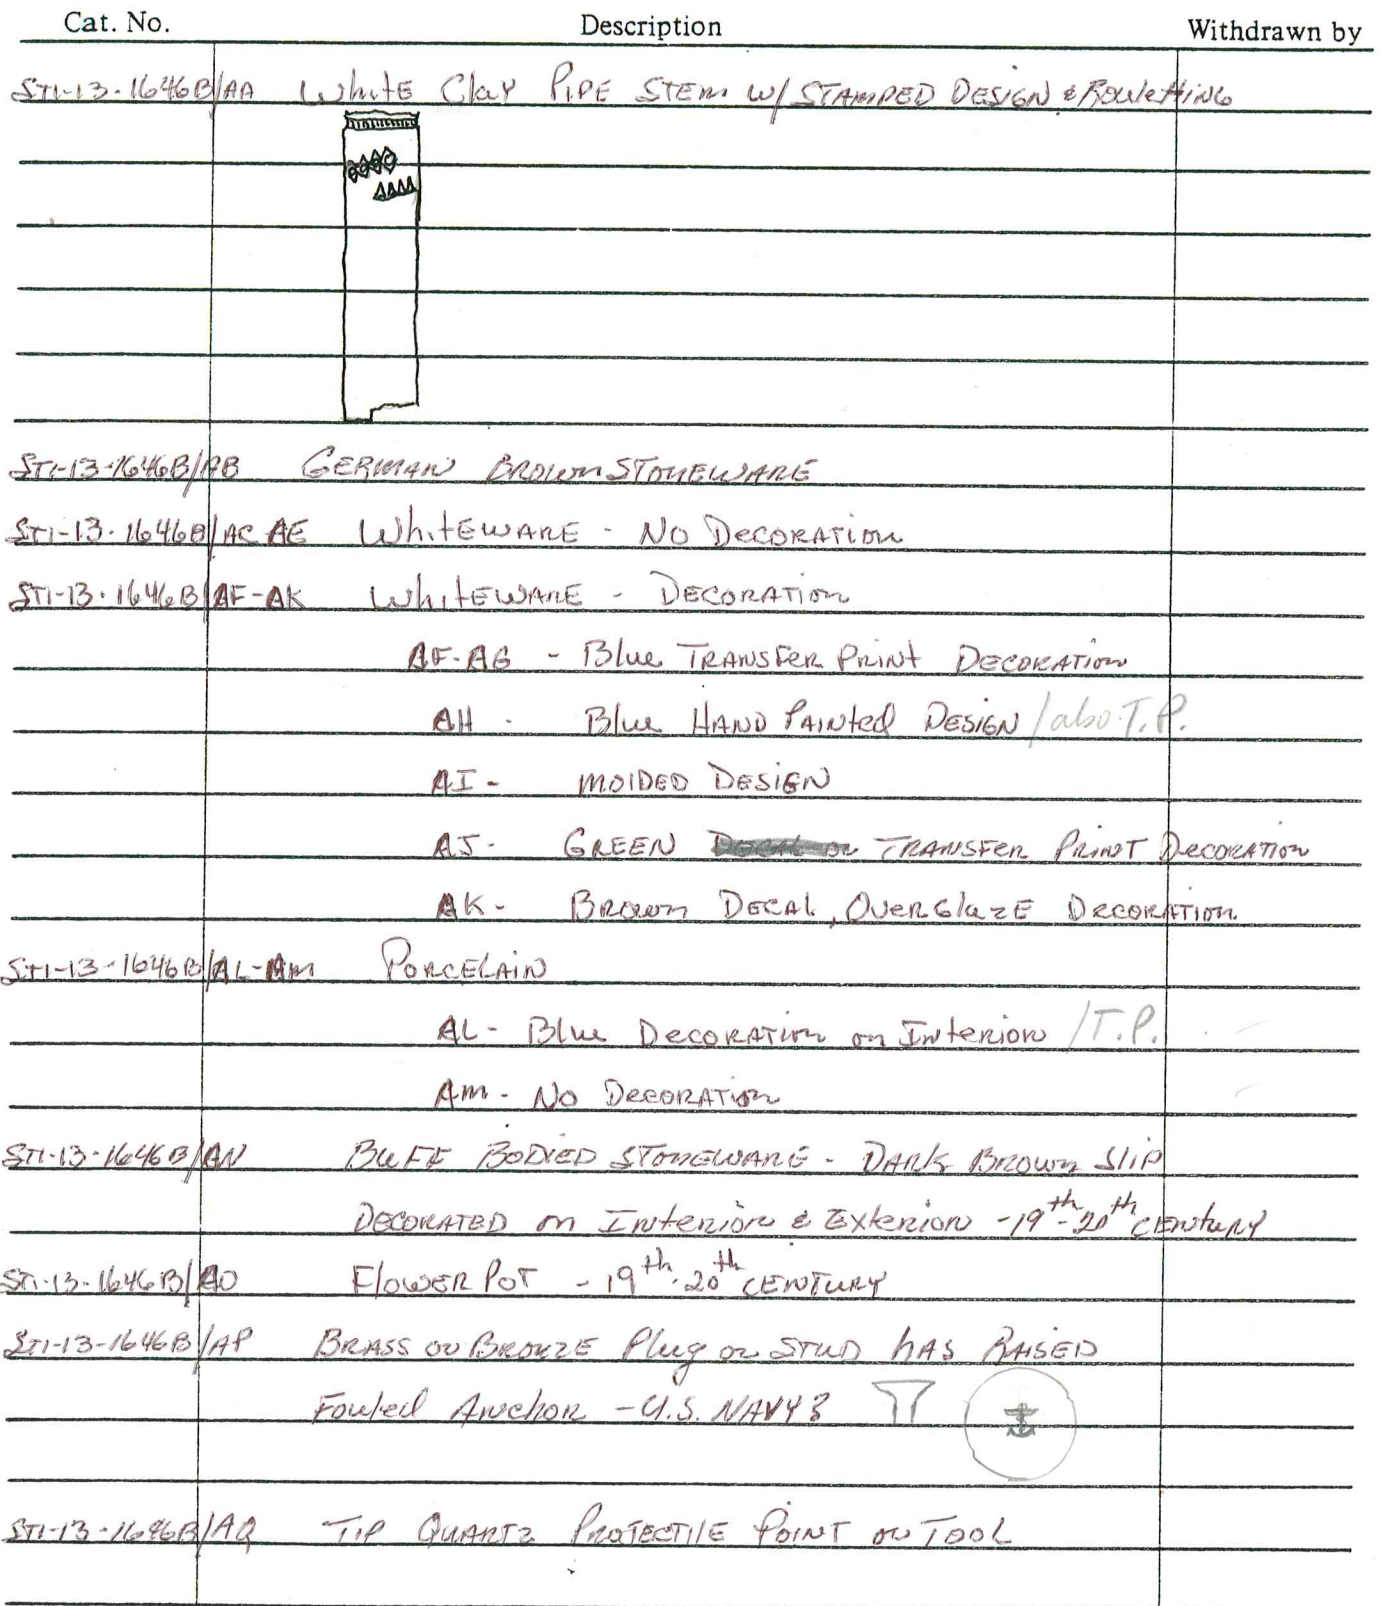 Cat. No. Description Withdrawn by
STI-13-1646B/AA White Clay Pipe Stem w/ Stamped Design & Rouletting
STI-13-1646B/AB German Brown Stoneware
STI-13-1646B/AC AE Whiteware - No Decoration
STI-13-1646B/AF-AK Whiteware - Decoration
AF-AG - Blue Transfer Print Decoration
AH - Blue Hand Painted Design /also T.P.
AI - Molded Design
AJ - Green Decal or Transfer Print Decoration
AK - Brown Decal, Overglaze Decoration
STI-13-1646B/AL-AM Porcelain
AL - Blue Decoration on Interior /T.P.
AM - No Decoration
STI-13-1646B/AN Buff Bodied Stoneware - Dark Brown Slip
Decorated on Interior & Exterior - 19th-20th Century
STI-13-1646B/AO Flower Pot - 19th-20th Century
STI-13-1646B/AP Brass or Bronze Plug or Stud has Raised
Fouled Anchor - U.S. Navy?
STI-13-1646B/AQ Tip Quartz Projectile Point or Tool